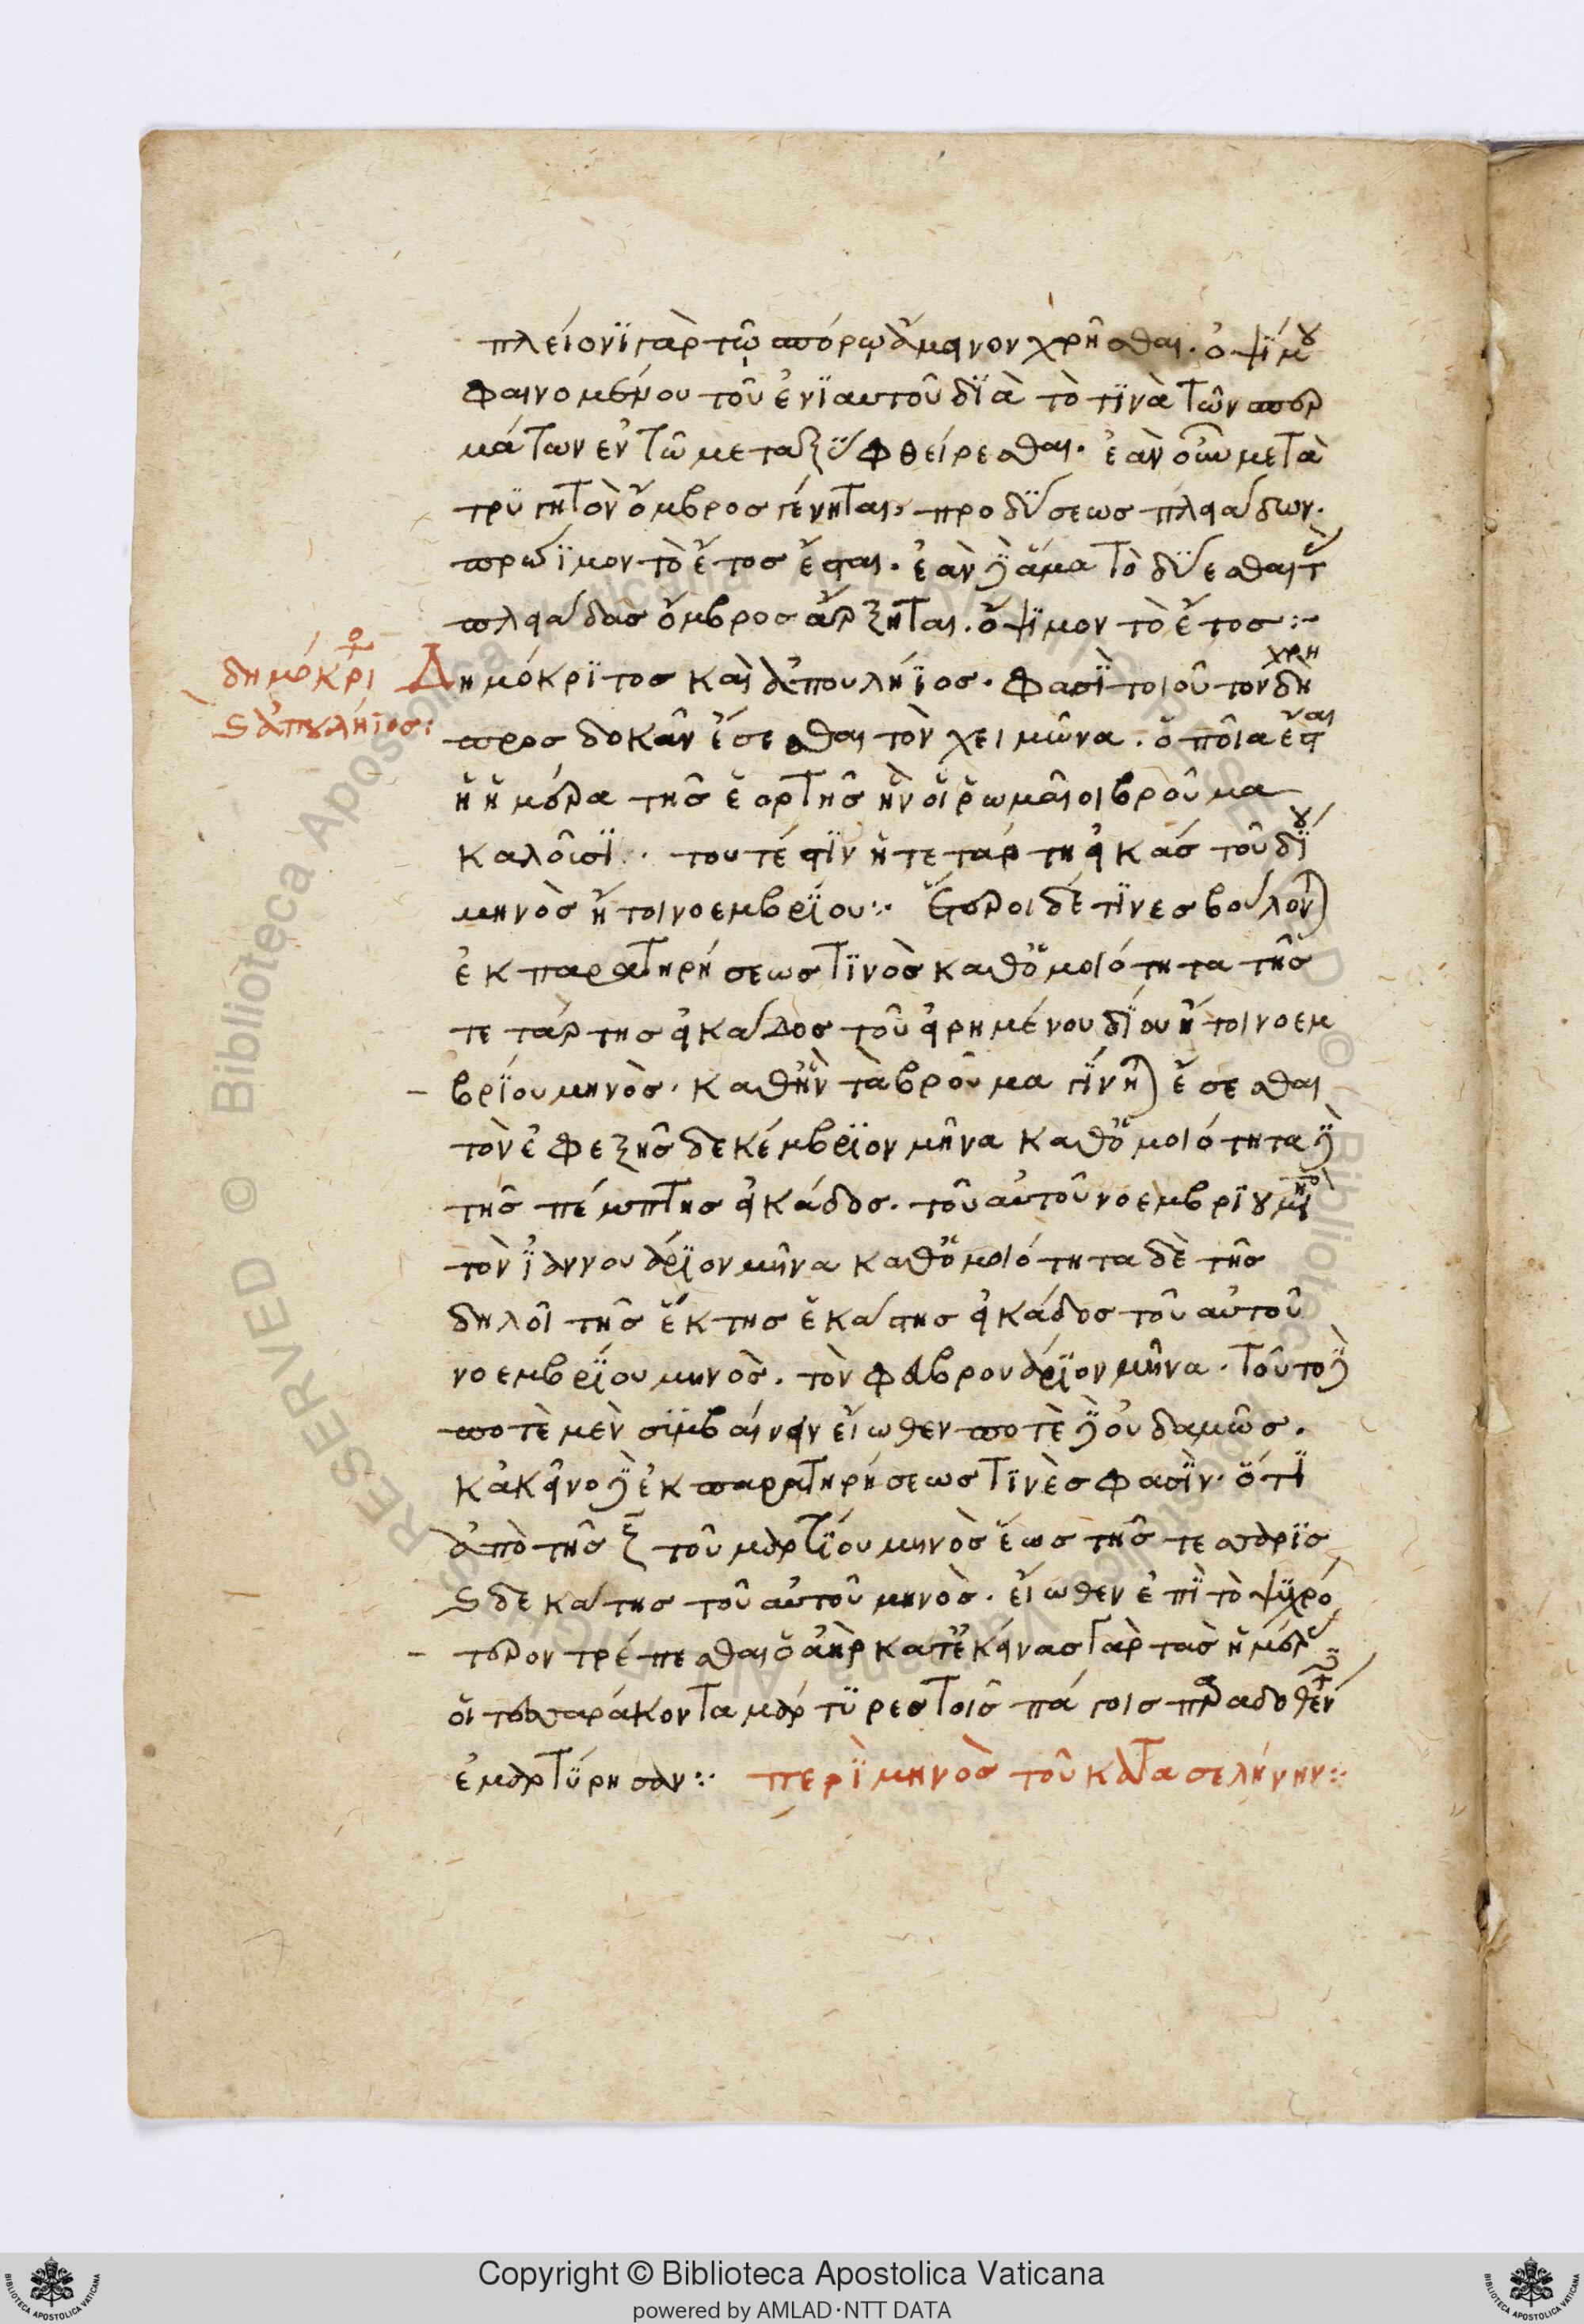 πλείονϊ γὰρ τῶ σπόρω ἄμεινον χρῆσθαι. ὀψΐμου
φαινομένου τοῦ ἐνϊαυτοῦ δϊὰ τὸ τϊνὰ τῶν σπερ
μάτων ἐν τῶ μεταξὺ φθείρεσθαι. ἐὰν οὖν μετὰ
τρϋγητὸν ὄμβρος γένηται, προ δύσεως πλειάδων.
πρώϊμον τὸ ἔτος ἔσται. ἐὰν δὲ ἅμα τὸ δύεσθαι τὰς
πλειάδας ὄμβρος ἄρξηται. ὄψϊμον τὸ ἔτος :~
δημόκριτος
Δημόκρϊτος καὶ ἀπουλήϊος. φασὶ τοιοῦτον δὴ χρὴ
καὶ ἀπουλήϊος:
προσδοκᾶν ἔσεσθαι τὸν χειμῶνα. ὁποία ἔσται
ἡ ἡμέρα τῆς ἑορτῆς ἣν οἱ ῥωμαῖοι βροῦμα
καλοῦσϊ. τουτέστϊν ἡ τετάρτη εἰκὰς τοῦ δΐου
μηνὸς ἤτοι νοεμβρΐου :~ ἕτεροι δέ τϊνες βούλονται
ἐκ παρατηρήσεως τϊνὸς καθ' ὁμοιότητα τῆς
τετάρτης εἰκάδος τοῦ εἰρημένου δΐου ἤτοι νοεμ
βρΐου μηνὸς. καθ' ἣν τὰ βροῦμα γΐνεται ἔσεσθαι
τὸν ἐφεξῆς δεκέμβρϊον μῆνα καθ' ὁμοιότητα δὲ
τῆς πέμπτης εἰκάδος. τοῦ αὐτοῦ νοεμβρΐου μηνὸς
τὸν ἰαννουάρϊον μῆνα καθ' ὁμοιότητα δὲ τῆς
δηλοῖ τῆς ἕκτης ἑκάστης εἰκάδος τοῦ αὐτοῦ
νοεμβρΐου μηνὸς. τὸν φαβρουάρϊον μῆνα. τοῦτο δὲ
ποτὲ μὲν σϋμβαίνειν εἴωθεν ποτὲ δὲ οὐδαμῶς.
κἀκεῖνο δὲ ἐκ παρατηρήσεως τϊνὲς φασὶν. ὅτι
ἀπὸ τῆς ζ τοῦ μαρτΐου μηνὸς ἕως τῆς τεσσαρϊς
καιδεκάτης τοῦ αὐτοῦ μηνὸς. εἴωθεν ἐπὶ τὸ ψϋχρό
τερον τρέπεσθαι ὁ ἀὴρ κατ' ἐκείνας γὰρ τὰς ἡμέρας
οἱ τεσσαράκοντα μάρτϋρες τοῖς πάγοις παραδοθέντες
ἐμαρτύρησαν :~ περὶ μηνὸς τοῦ κατὰ σελήνην :~